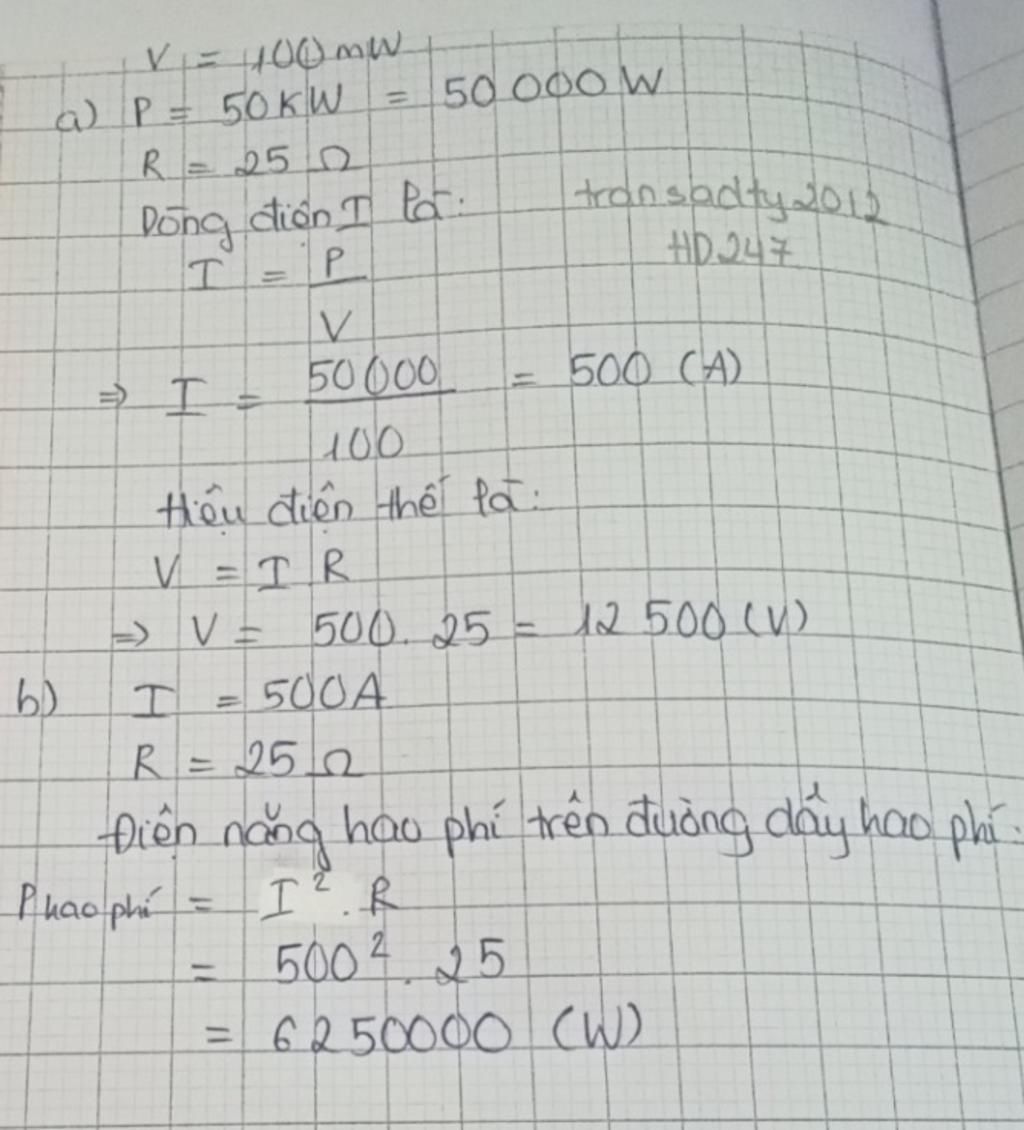 V = 100 mW
a) P = 50KW = 50 000 W
R = 25 Ω
Dòng điện I là:
transadty2012
HD247
I = P / V
⇒ I = 50 000 / 100 = 500 (A)
Hiệu điện thế là:
V = I R
=> V = 500. 25 = 12 500 (V)
b) I = 500A
R = 25 Ω
Điện năng hao phí trên đường dây hao phí:
P hao phí = I². R
= 500². 25
= 6250000 (W)